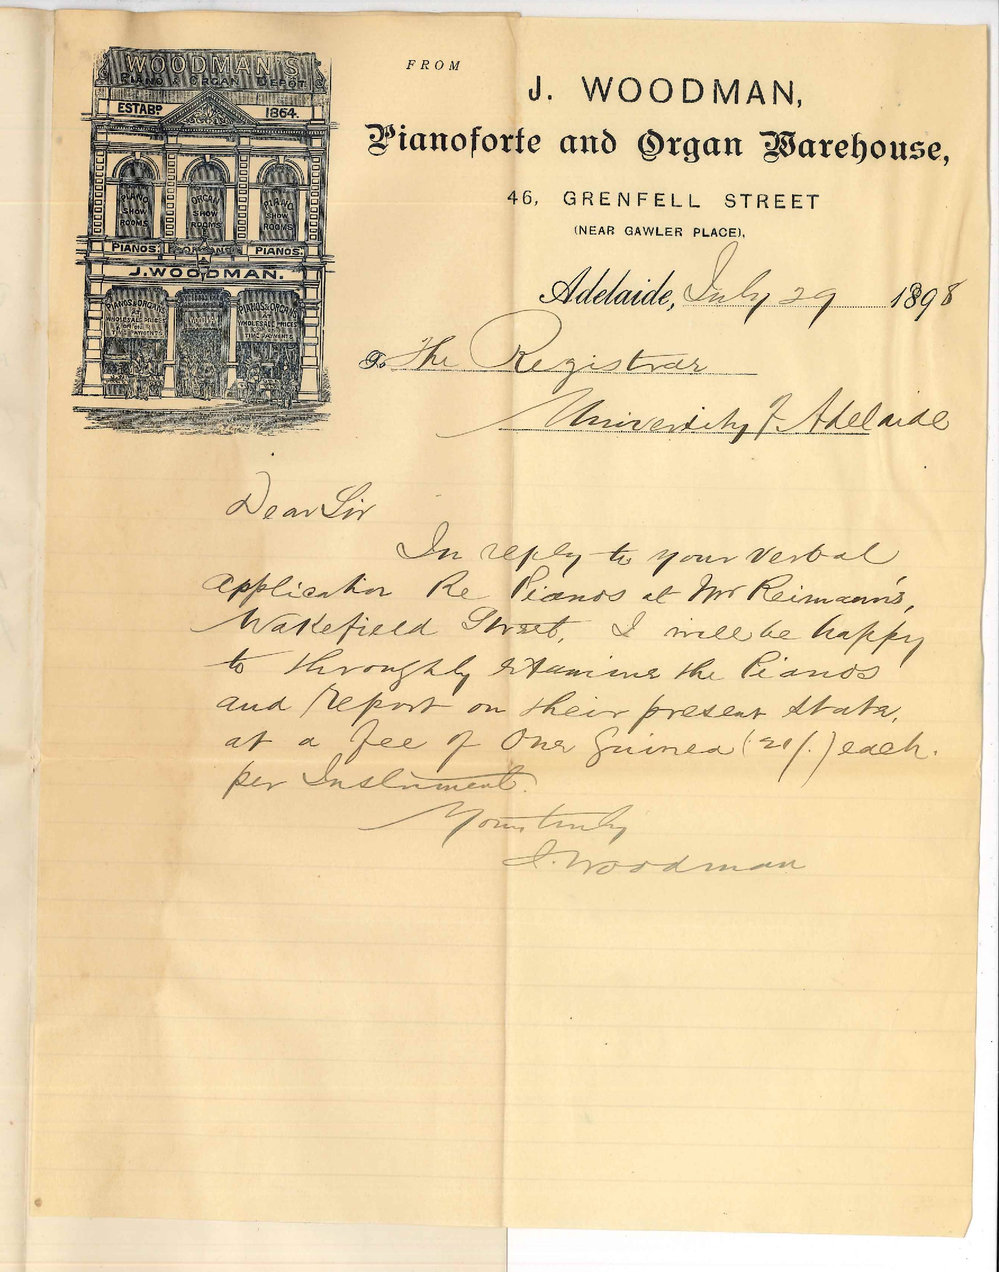 WOODMAN'S
PIANO & ORGAN DEPOT
ESTABD. 1864.
PIANO SHOW ROOMS
ORGAN SHOW ROOMS
PIANO SHOW ROOMS
PIANOS. PIANOS.
J. WOODMAN.
PIANOS & ORGANS
AT
WHOLESALE PRICES
TIME PAYMENTS
PIANOS & ORGANS
WHOLESALE PRICES
TIME PAYMENTS
FROM
J. WOODMAN,
Pianoforte and Organ Warehouse,
46, GRENFELL STREET
(NEAR GAWLER PLACE),
Adelaide, July 29 1898
To The Registrar
University of Adelaide
Dear Sir
In reply to your verbal
application Re Pianos at Mr Reimann's,
Wakefield Street, I will be happy
to throughly examine the Pianos
and report on their present state,
at a fee of One Guinea (21/.) each.
per Instrument.
Yours truly
J. Woodman